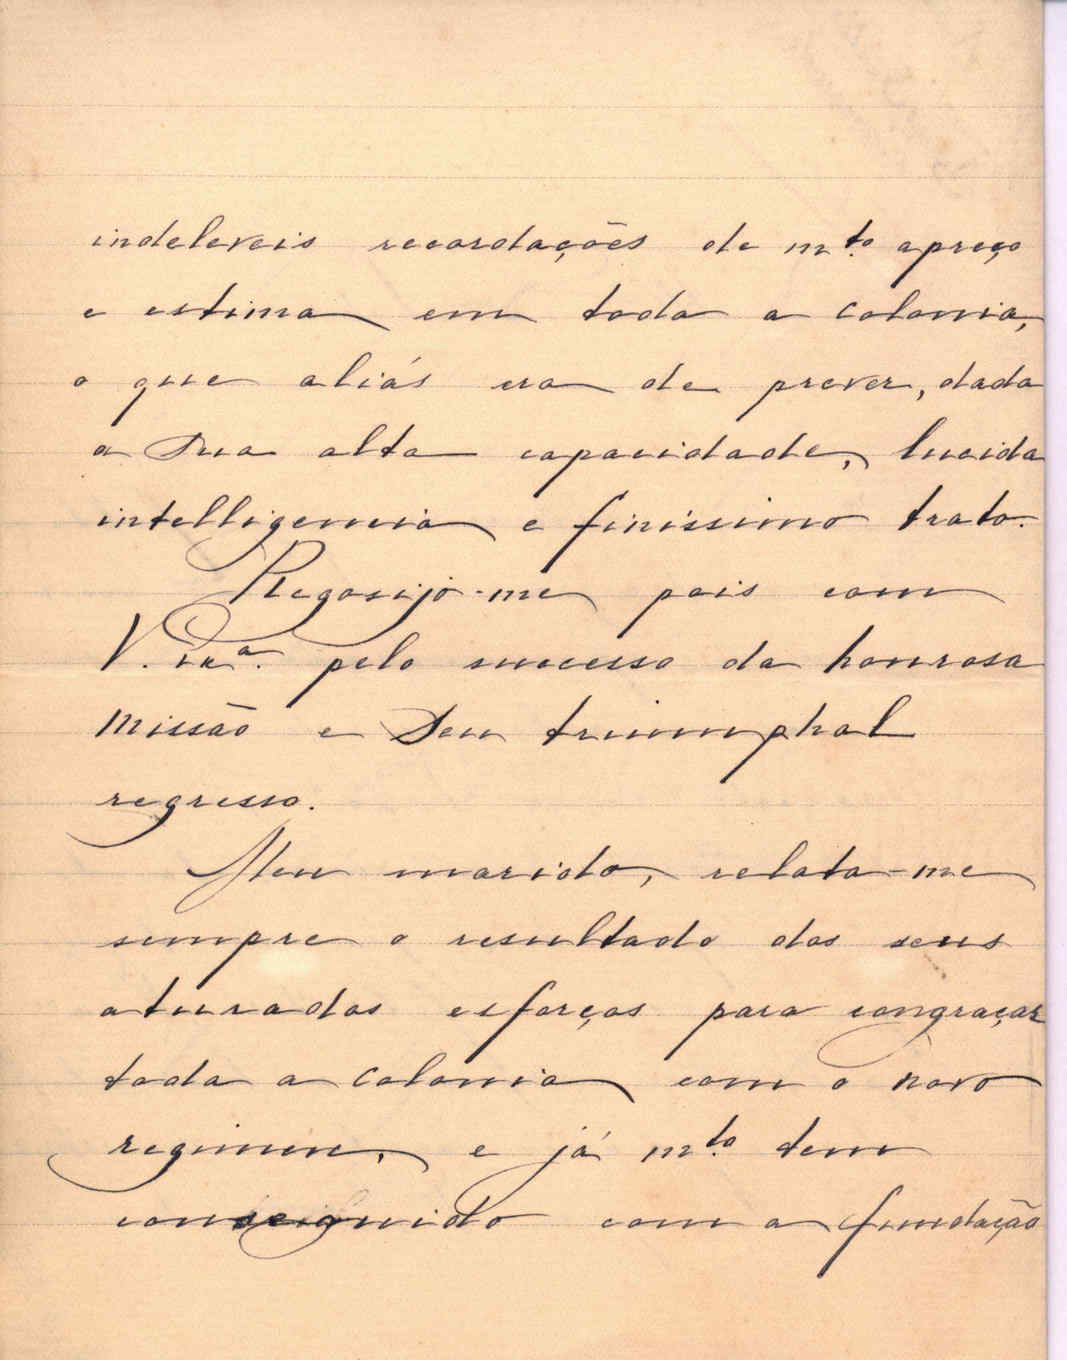 indeleveis recordações de mto. apreço
e estima em toda a colonia,
o que aliás era de prever, dada
a Sua alta capacidade, lucida
intelligencia e finissimo trato.
Regosijo-me pois com
V. Exa. pelo successo da honrosa
missão e Seu triumphal
regresso.
Meu marido, relata-me
sempre o resultado dos seus
aturados esforços para congraçar
toda a colonia com o novo
regimen, e já mto. tem
conseguido com a fundação